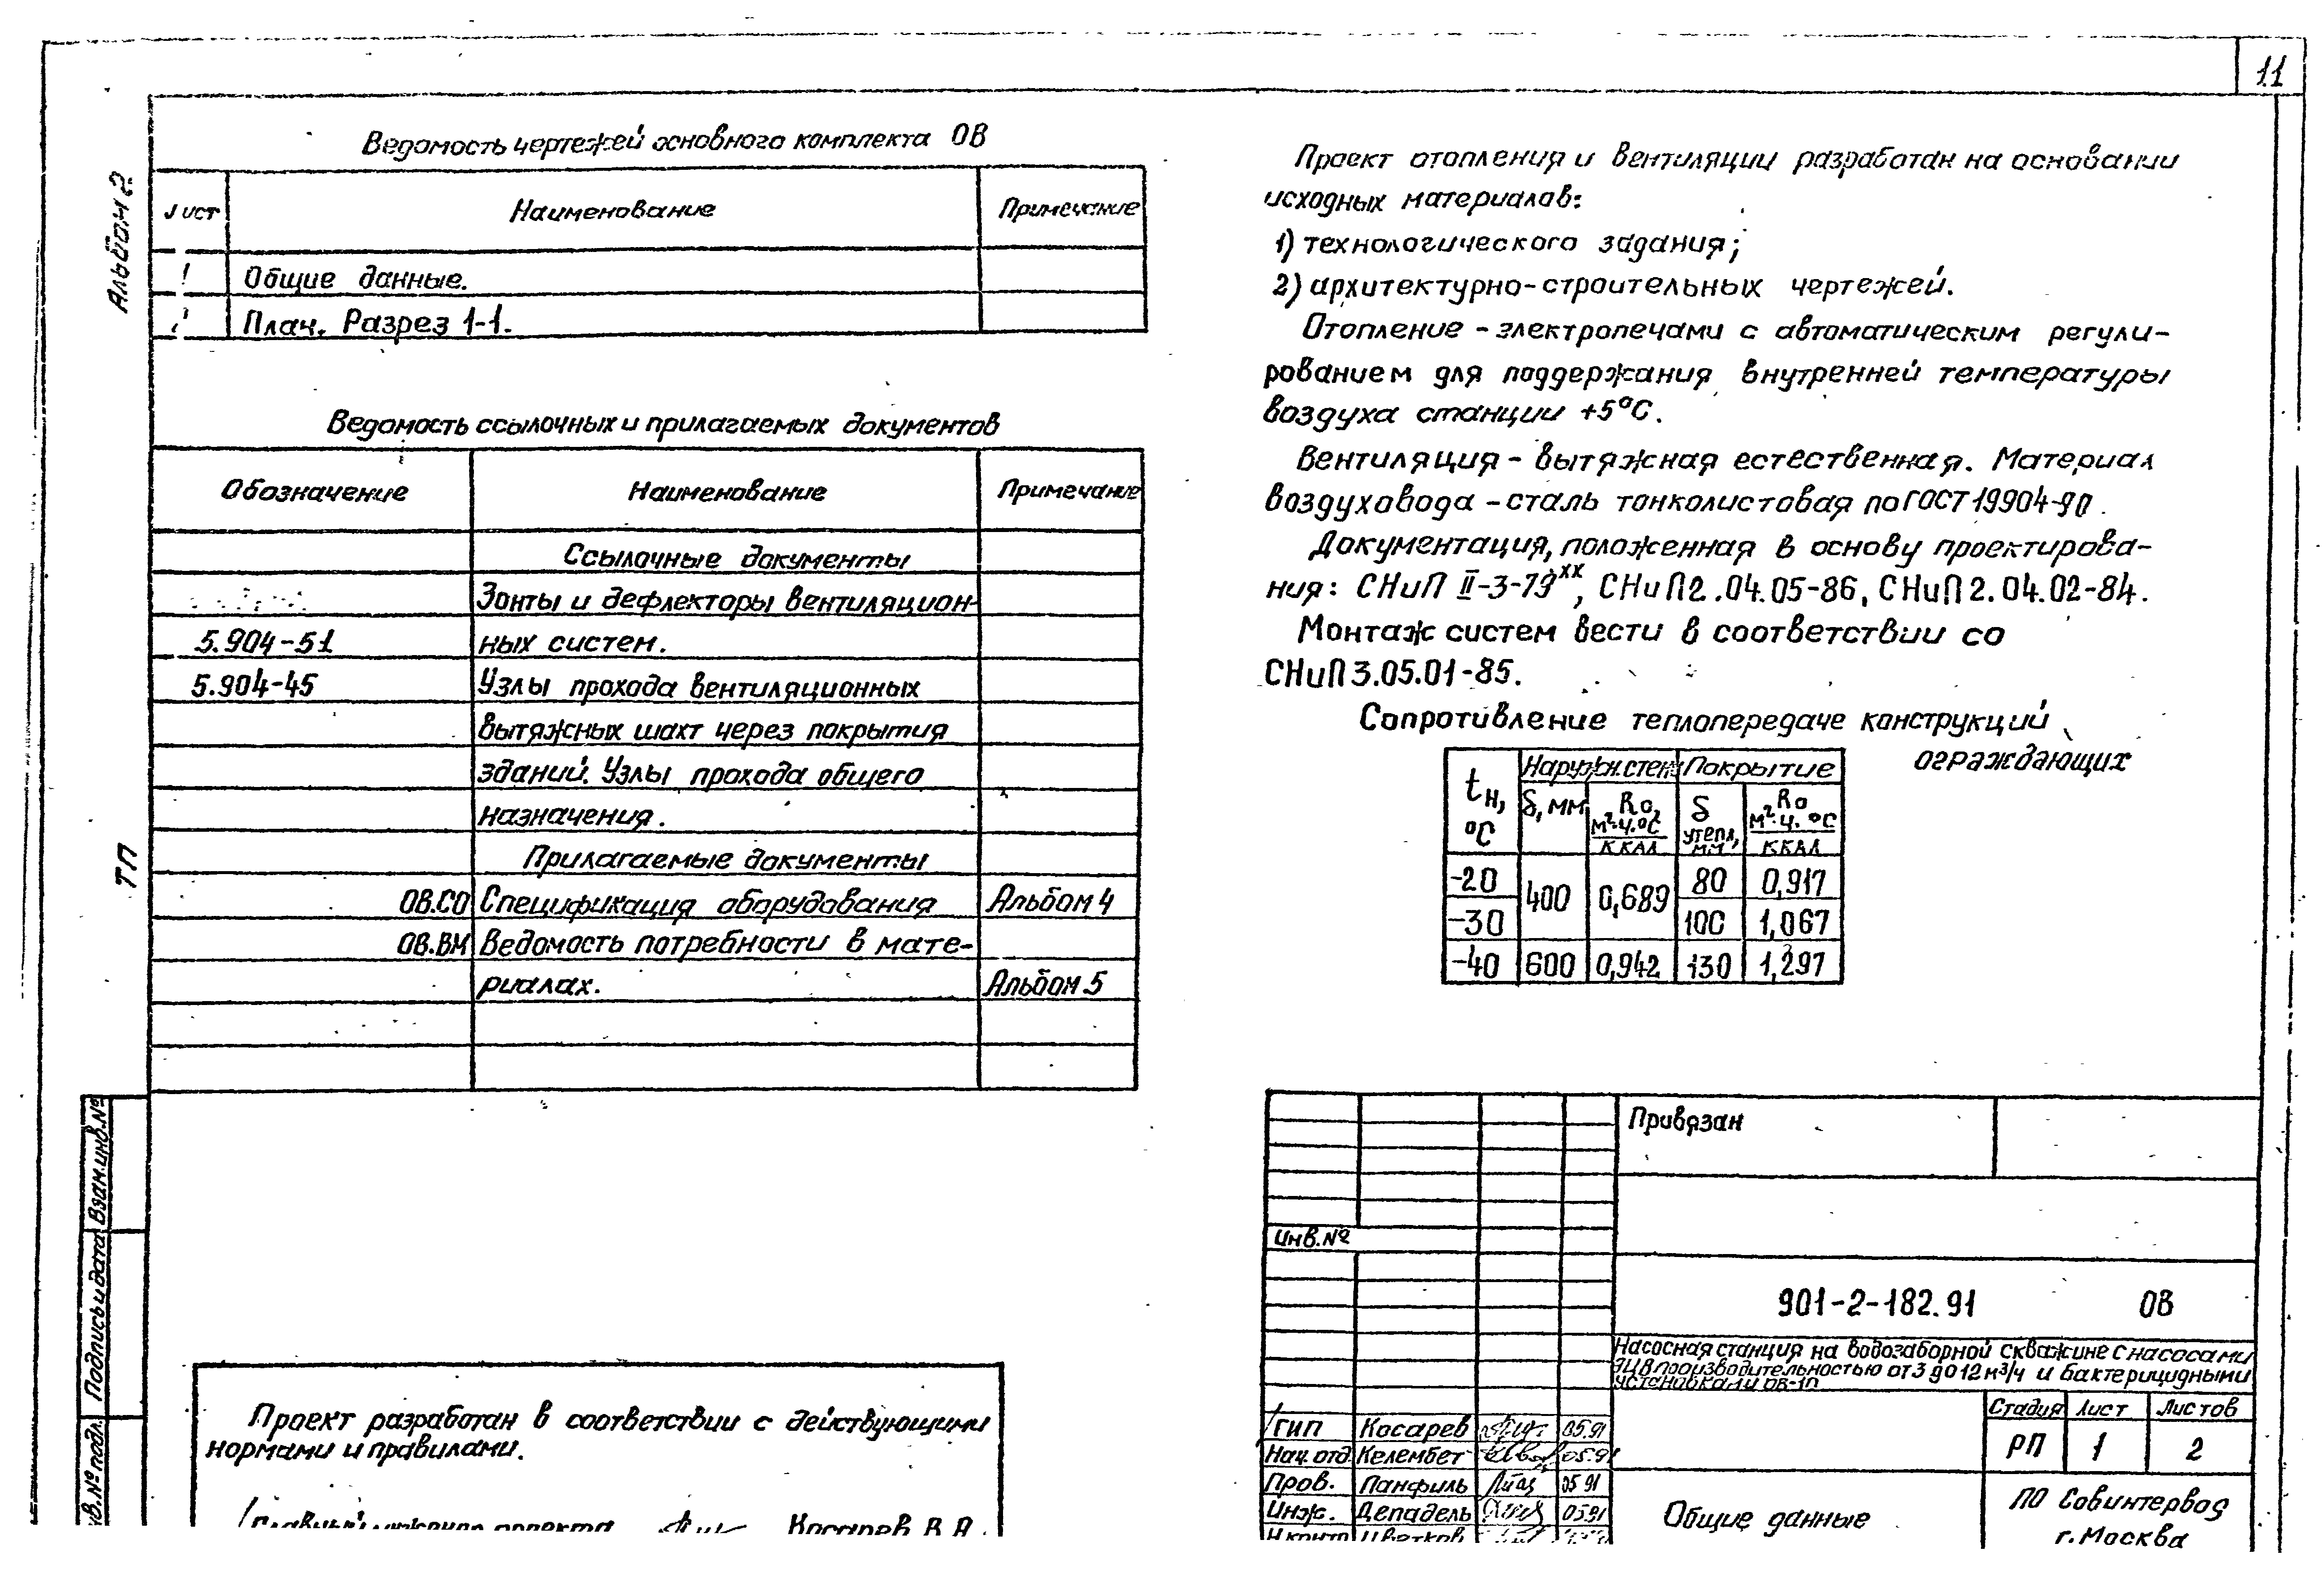 11
Альбом 2.
ТП
Ведомость чертежей основного комплекта ОВ
Лист Наименование Примечание
1 Общие данные.
2 План. Разрез 1-1.
Ведомость ссылочных и прилагаемых документов
Обозначение Наименование Примечание
Ссылочные документы
Зонты и дефлекторы вентиляцион-
5.904-51 ных систем.
5.904-45 Узлы прохода вентиляционных
вытяжных шахт через покрытия
зданий. Узлы прохода общего
назначения.
Прилагаемые документы
ОВ.СО Спецификация оборудования Альбом 4
ОВ.ВМ Ведомость потребности в мате-
риалах. Альбом 5
Проект разработан в соответствии с действующими
нормами и правилами.
Главный инженер проекта Косарев В.А.
Взам.инв.№
Подпись и дата
Инв.№ подл.
Проект отопления и вентиляции разработан на основании
исходных материалов:
1) технологического задания;
2) архитектурно-строительных чертежей.
Отопление - электропечами с автоматическим регули-
рованием для поддержания внутренней температуры
воздуха станции +5°С.
Вентиляция - вытяжная естественная. Материал
воздуховода - сталь тонколистовая по ГОСТ 19904-90.
Документация, положенная в основу проектирова-
ния: СНиП II-3-79ˣˣ, СНиП 2.04.05-86, СНиП 2.04.02-84.
Монтаж систем вести в соответствии со
СНиП 3.05.01-85.
Сопротивление теплопередаче конструкций
ограждающих
tн, °С Наружн. стены Покрытие
δ, мм Rо, м²·ч·°С/ккал δ утепл, мм Rо м²·ч·°С/ккал
-20 400 0,689 80 0,917
-30 100 1,067
-40 600 0,942 130 1,297
Привязан
Инв.№
901-2-182.91 ОВ
Насосная станция на водозаборной скважине с насосами
ЭЦВ производительностью от 3 до 12 м³/ч и бактерицидными
установками ОВ-1п
Стадия Лист Листов
РП 1 2
ГИП Косарев 05.91
Нач.отд. Келембет 05.91
Пров. Панфиль 05 91
Инж. Депадель 05.91
Н.контр Цветков
Общие данные
ПО Совинтервод
г. Москва